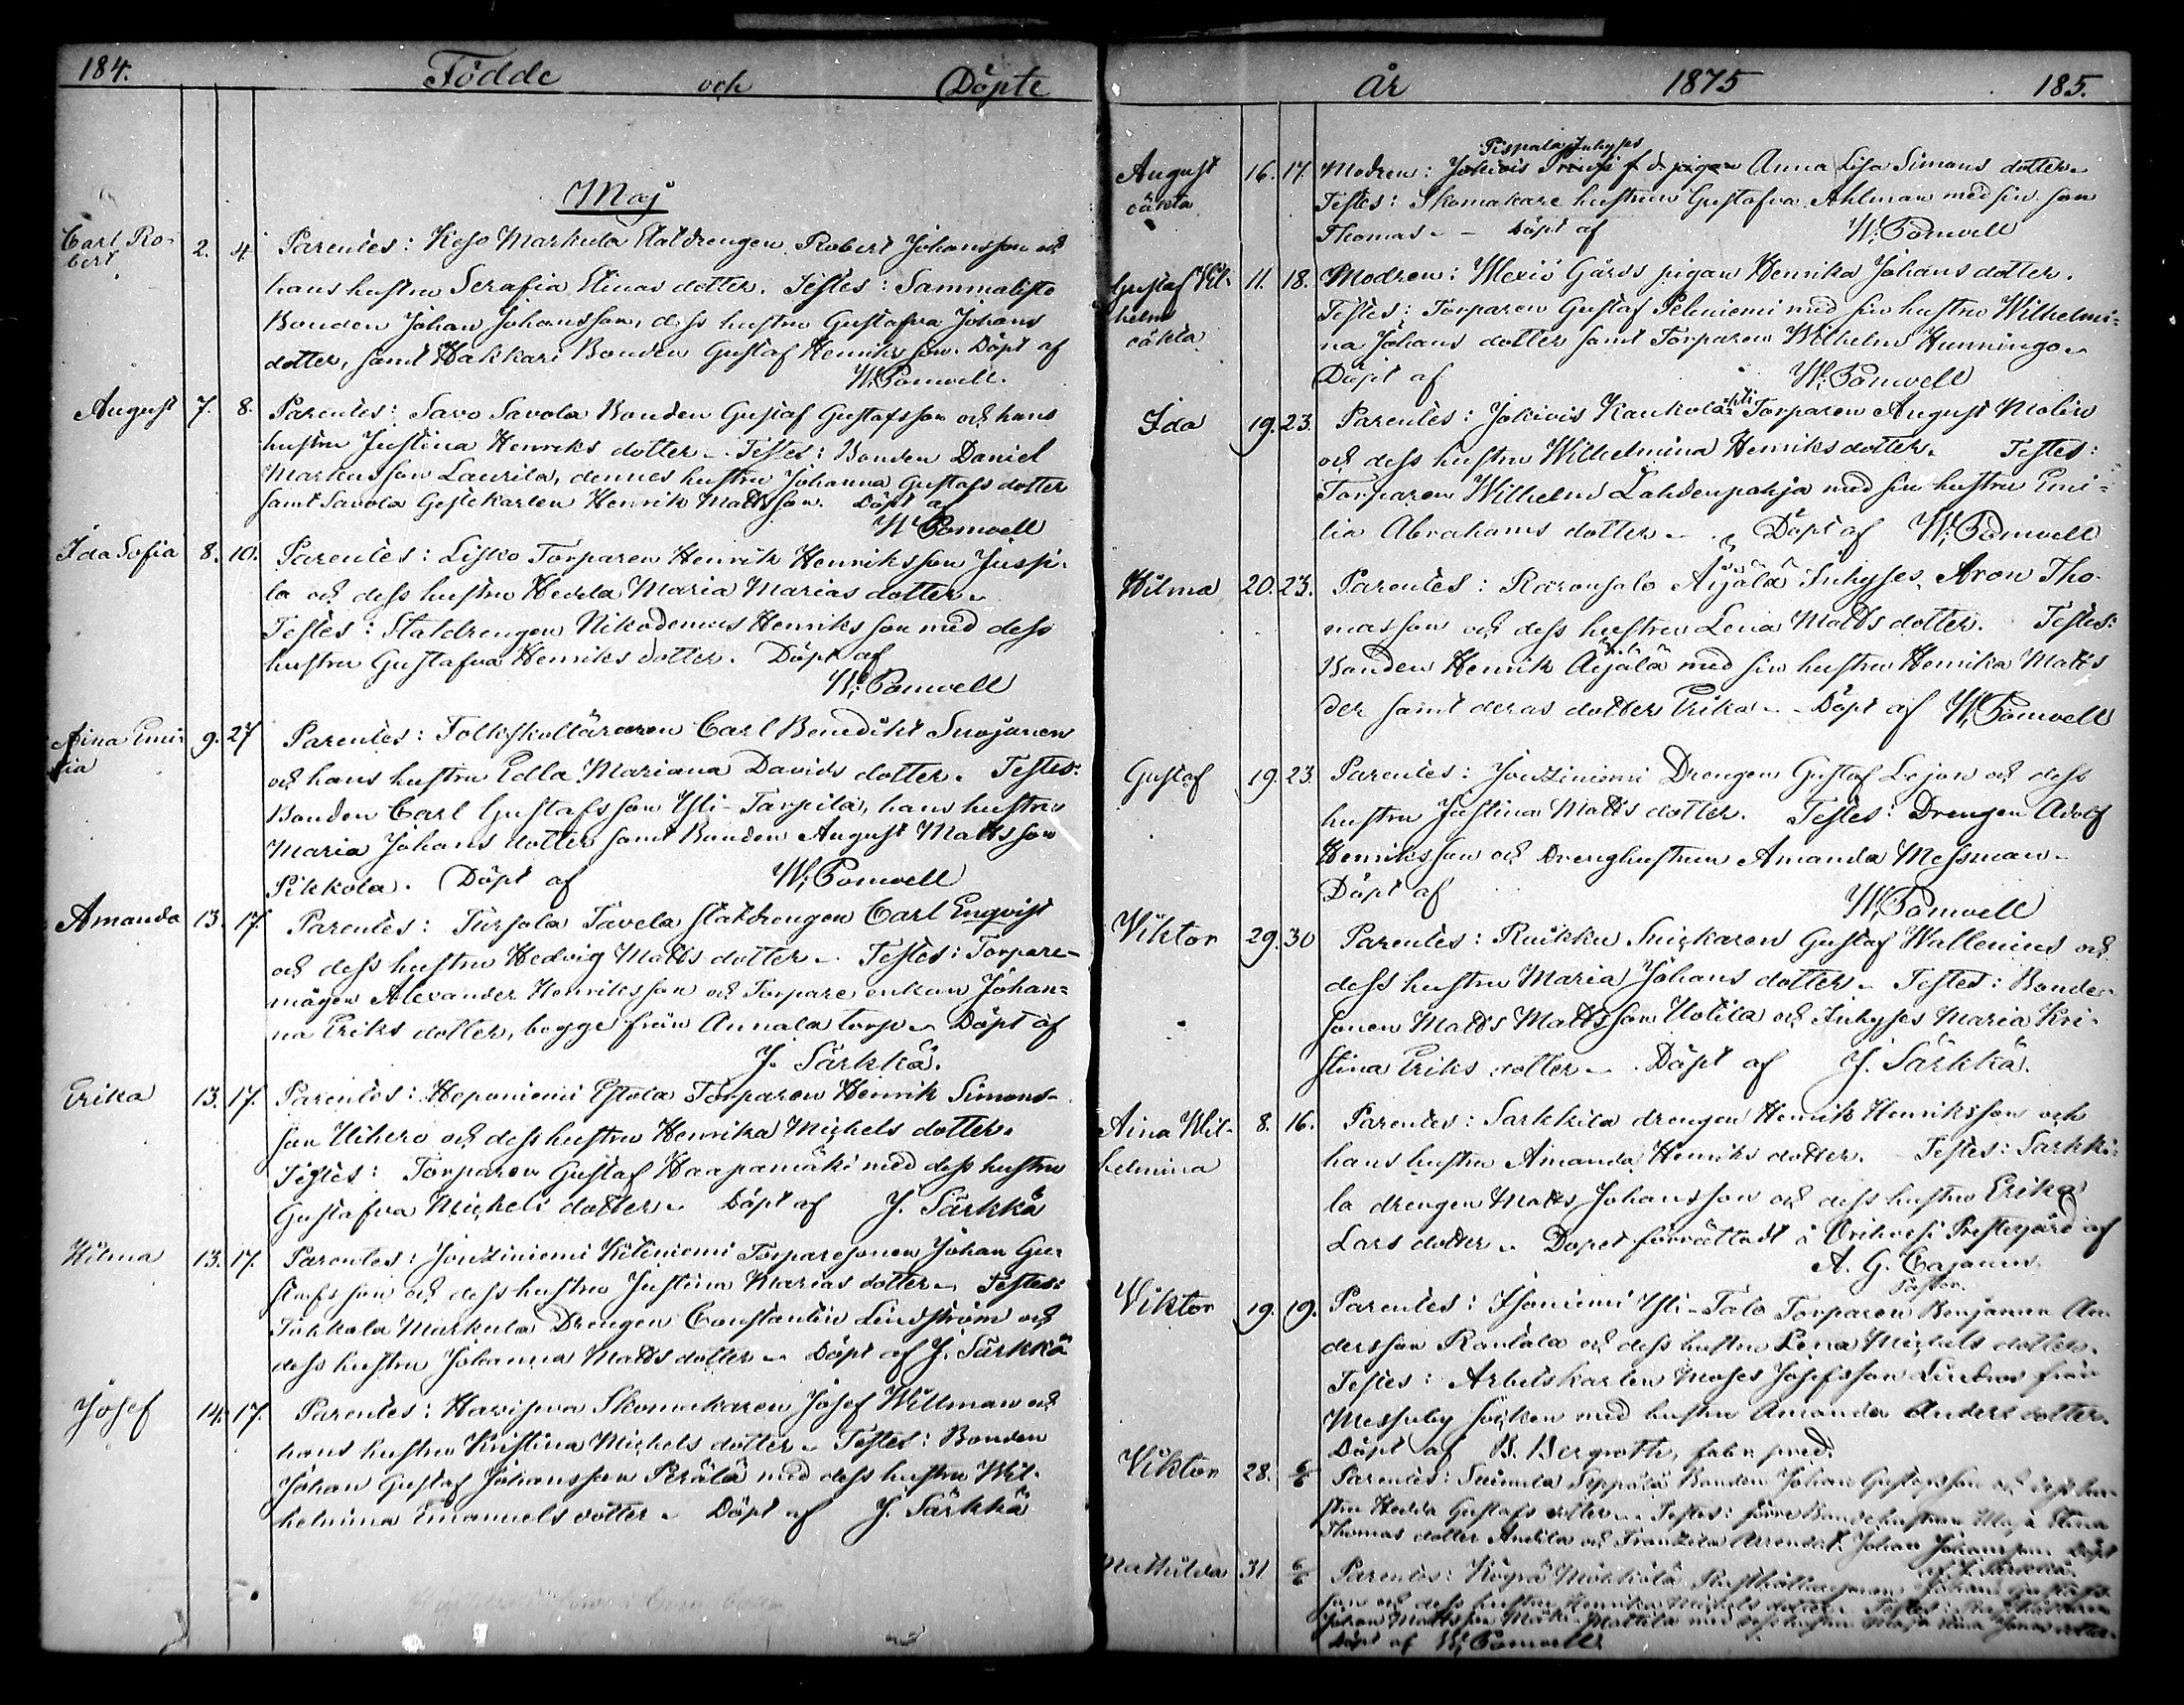 184.
Födde och Döpte
Maj
Carl Ro-
bert
2. 4 Parentes: Keso Markula Statdrengen Robert Johansson och
hans hustru Serafia Stinas dotter. Testes: Sammaliste
Bonden Johan Johansson, dess hustru Gustafva Johans
dotter, samt Hakkari Bonden Gustaf Henriksson. Döpt af
W. Pomoell.
August 7. 8. Parentes: Savo Savola Bonden Gustaf Gustafsson och hans
hustru Justina Henriks dotter. Testes: Bonden Daniel
Markusson Laurila, dennes hustru Johanna Gustafs dotter
samt Savola Gestekarlen Henrik Mattsson. Döpt af
W. Pomoell
Ida Sofia 8. 10. Parentes: Lisko Torparen Henrik Henriksson Jussi-
la och dess hustru Hedda Maria Marias dotter.
Testes: Statdrengen Nikodemus Henriksson med dess
hustru Gustafva Henriks dotter. Döpt af
W. Pomoell
Aina Emi-
lia
9. 27 Parentes: Folkskolläraren Carl Benedikt Suojanen
och hans hustru Edla Mariana Davids dotter. Testes:
Bonden Carl Gustafsson Yli-Tarpila, hans hustru
Maria Johans dotter samt Bonden August Mattsson
Pikkola. Döpt af W. Pomoell
Amanda 13. 17. Parentes: Tursola Tavela statdrengen Carl Enqvist
och dess hustru Hedvig Matts dotter. Testes: Torpare-
mågen Alexander Henriksson och Torpare enkan Johan-
na Eriks dotter, begge från Annala torp. Döpt af
J. Särkkä.
Erika 13. 17. Parentes: Heponiemi Eskola Torparen Henrik Simons-
son Uihero och dess hustru Henrika Michels dotter.
Testes: Torparen Gustaf Haapamäki med dess hustru
Gustafva Michels dotter. Döpt af J. Särkkä
Hilma 13. 17. Parentes: Joutziniemi Kiliniemi Torparesonen Johan Gu-
stafsson och dess hustru Justina Marias dotter. Testes:
Tohkala Markula Drengen Constantin Lindström och
dess hustru Johanna Matts dotter. Döpt af J. Särkkä
Josef 14. 17. Parentes: Havisova Skomakaren Josef Willman och
hans hustru Kristina Michels dotter. Testes: Bonden
Johan Gustaf Johansson Perälä med dess hustru Wil-
helmina Emanuels dotter. Döpt af J. Särkkä
År 1875 185.
Pispala Inhyses
August
oäkta
16. 17. Modren: f. d. pigan Anna Lisa Simons dotter.
Testes: Skomakare hustrun Gustafva Ahlman med sin son
Thomas. Döpt af W. Pomoell
Gustaf Vil-
helm
oäkta
11. 18. Modren: Wexiö Gårds pigan Henrika Johans dotter.
Testes: Torparen Gustaf Peliniemi med sin hustru Wilhelmi-
na Johans dotter samt Torparen Wilhelm Hunningo.
Döpt af W. Pomoell
Ida 19. 23. Parentes: Jokiois Kaukola Torparen August Molin
och dess hustru Wilhelmina Henriks dotter. Testes:
Torparen Wilhelm Lahdenpohja med sin hustru Emi-
lia Abrahams dotter. Döpt af W. Pomoell
Hilma 20. 23. Parentes: Raronsalo Äijälä Inhyses Aron Tho-
masson och dess hustru Lena Matts dotter. Testes:
Bonden Henrik Äijälä med sin hustru Henrika Matts
der samt deras dotter Erika. Döpt af W. Pomoell
Gustaf 19. 23. Parentes: Joutziniemi Drengen Gustaf Lejon och dess
hustru Justina Matts dotter. Testes: Drengen Adolf
Henriksson och Drenghustrun Amanda Messman.
Döpt af W. Pomoell
Viktor 29. 30 Parentes: Ruikku Snickaren Gustaf Wallenius och
dess hustru Maria Johans dotter. Testes: Bonde-
sonen Matts Mattsson Uotila och Inhyses Maria Kri-
stina Eriks dotter. Döpt af J. Särkkä.
Aina Wil-
helmina
8. 16. Parentes: Sarkkila drengen Henrik Henriksson och
hans hustru Amanda Henriks dotter. Testes: Sarkki-
la drengen Matts Johansson och dess hustru Erika
Lars dotter. Dopet förrättadt å Orihvesi Prestegård af
A. G. Cajanus.
Pastor.
Viktor 19. 19. Parentes: Isoniemi Yli-Talo Torparen Benjamin An-
dersson Rantala och dess hustru Lena Michels dotter.
Testes: Arbetskarlen Moses Josefsson Lindroos från
Messuby socken med hustru Amanda Anders dotter.
Döpt af B. Bergroth, fabr. pred.
Viktor 28. 6/6 Parentes: Suinula Seppälä Bonden Johan Gustafsson och dess hu-
stru Hedda Gustafs dotter. Testes: förre Bondehustrun Maja Stina
Thomas dotter Anttila och Frantzila Arrend. Johan Johansson. Döpt
af J. Särkkä.
Mathilda 31 6/6 Parentes: Rusthållaresonen Johan Gustafs-
son och dess hustru Henrika Michels dotter. Testes:
Johan Mattsson Mattila med dess hustru Maja Stina Johans dotter.
Döpt af W. Pomoell